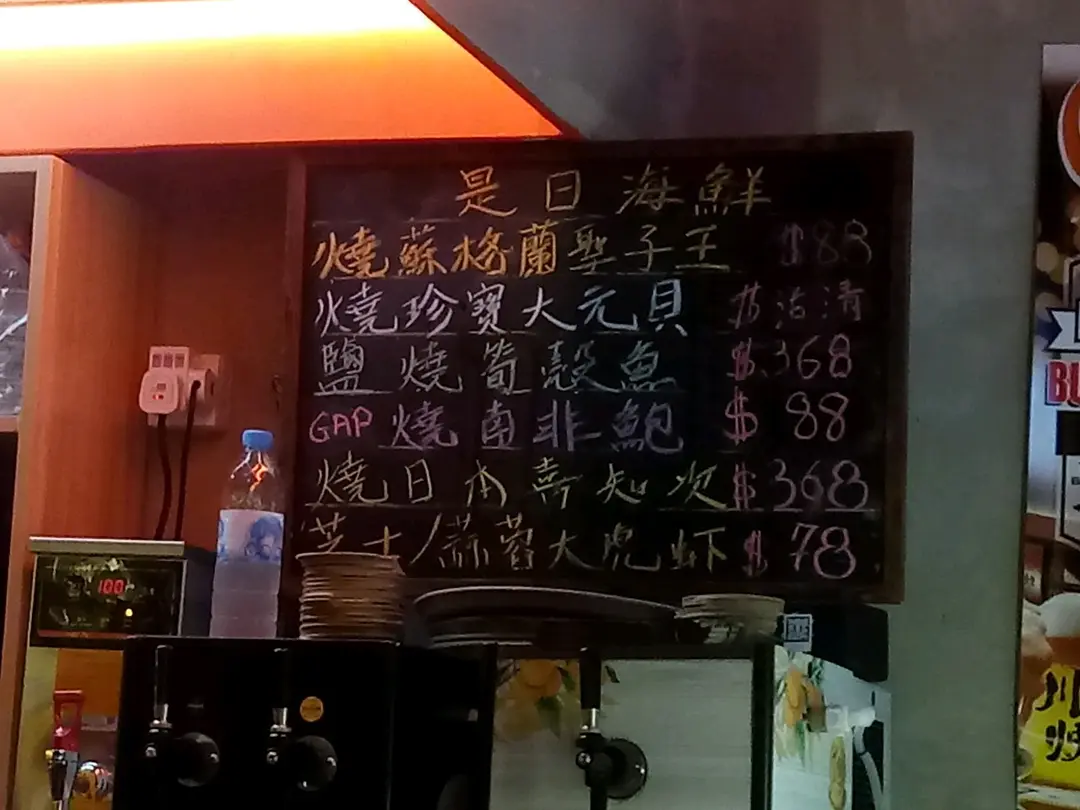 是日海鮮
燒蘇格蘭聖子王 $88
燒珍寶大元貝 $沽清
鹽燒筍殼魚 $368
GAP燒南非鮑 $88
燒日本喜知次 $368
芝士/蒜蓉大虎蝦 $78
100
BU
川
燒